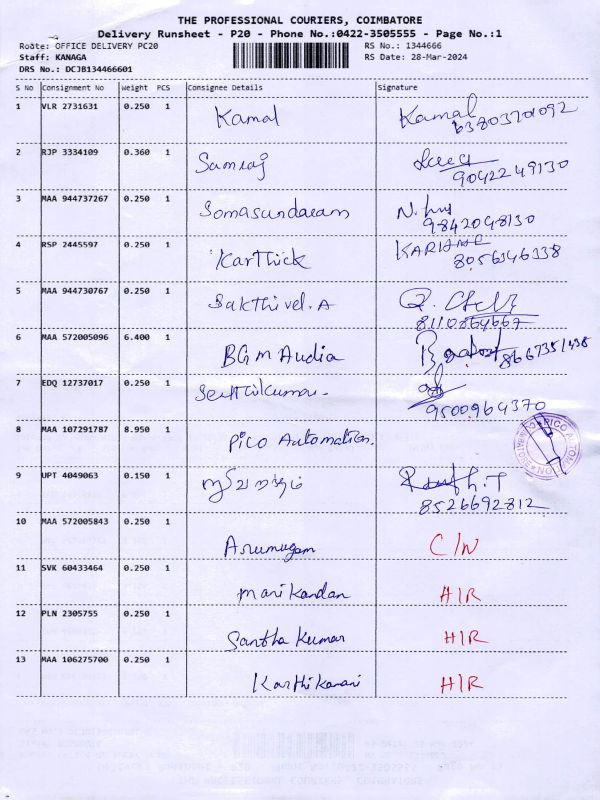 THE PROFESSIONAL COURIERS, COIMBATORE
Delivery Runsheet - P20 - Phone No.:0422-3505555 - Page No.:1
Route: OFFICE DELIVERY PC20 RS No.: 1344666
Staff: KANAGA RS Date: 28-Mar-2024
DRS No.: DCJB134466601
S No Consignment No Weight PCS Consignee Details Signature
1 VLR 2731631 0.250 1 Kamal Kamal
6380370092
2 RJP 3334109 0.360 1
9042249130
3 MAA 944737267 0.250 1 Somasundaram
9842048130
4 RSP 2445597 0.250 1 Karthick
8056346338
5 MAA 944730767 0.250 1 Sakthivel. A
8110864667
6 MAA 572005096 6.400 1 BGM Audia
7 EDQ 12737017 0.250 1 Senthilkumar.
9500964370
8 MAA 107291787 8.950 1 PICO Automation.
9 UPT 4049063 0.150 1
8526692812
10 MAA 572005843 0.250 1 Arumugam C/N
11 SVK 60433464 0.250 1 Marikandan H/R
12 PLN 2305755 0.250 1 Santha Kumar H/R
13 MAA 106275700 0.250 1 H/R